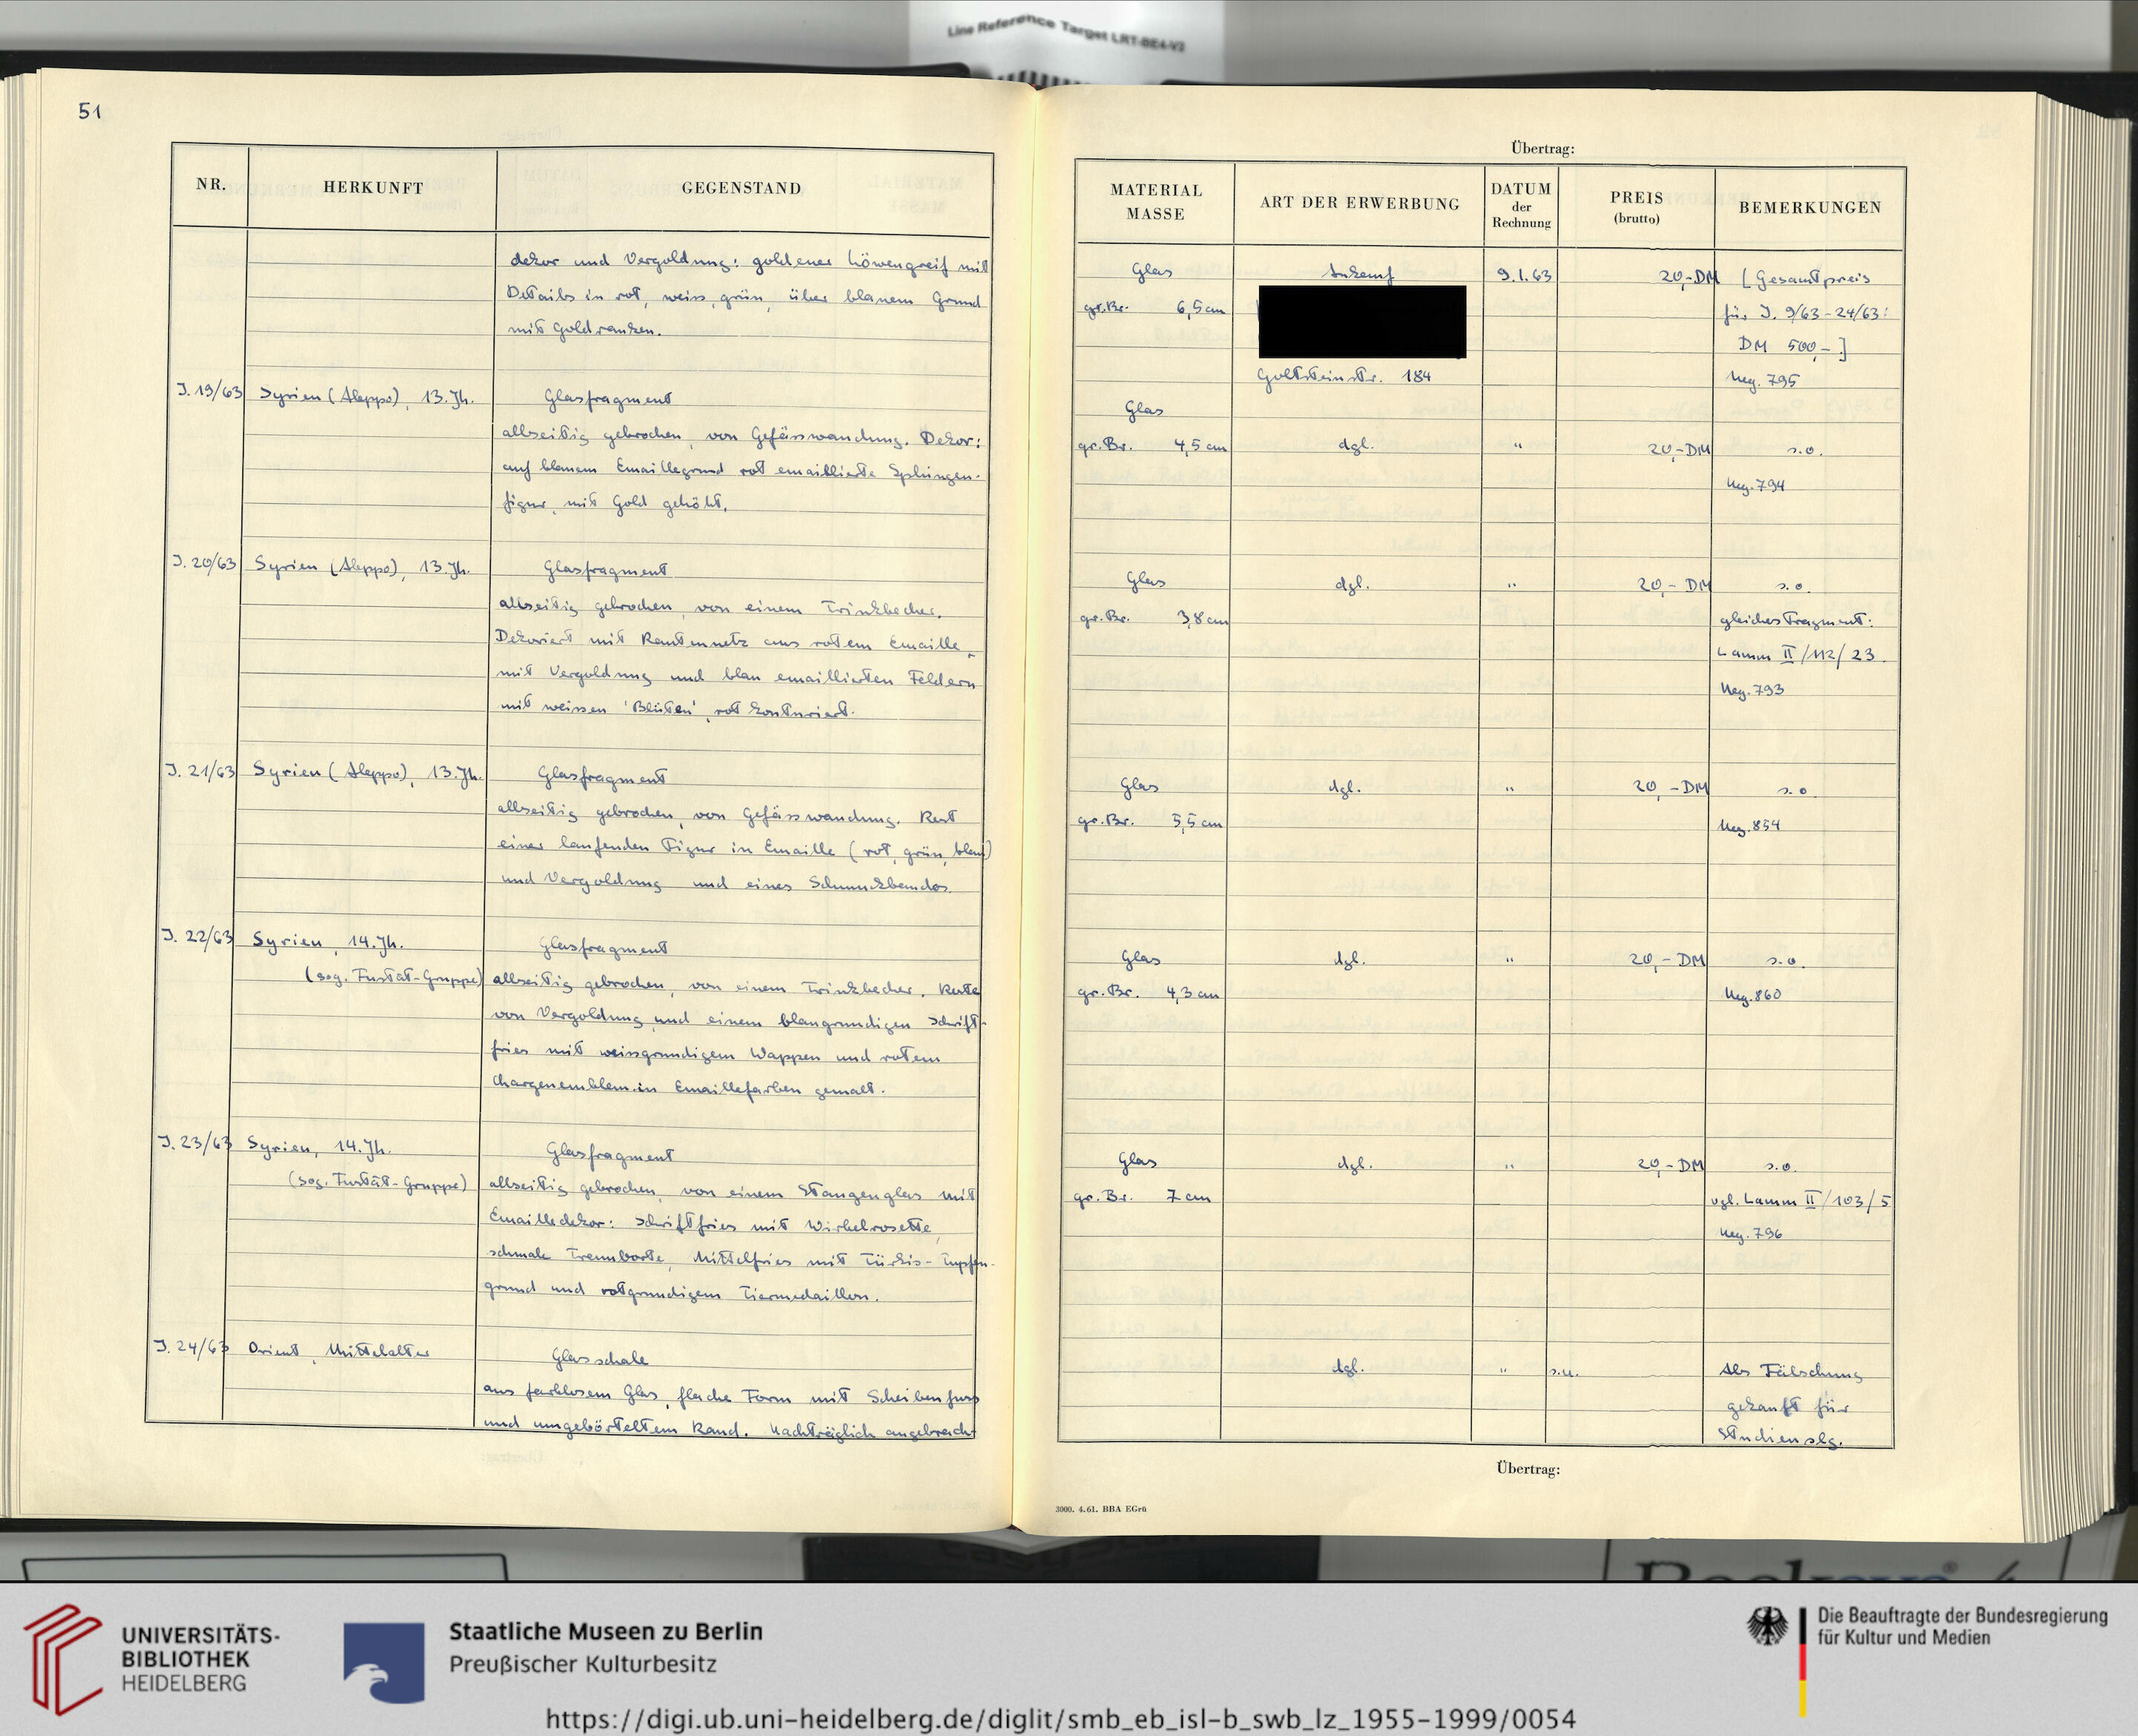 Line Reference Target LRT-BE4-V2
51
NR.
HERKUNFT
GEGENSTAND
dekor und Vergoldung: goldener Löwengreif mit
Details in rot, weiss, grün, über blauem Grund
mit Goldranken.
J. 19/63 Syrien (Aleppo), 13. Jh. Glasfragment
allseitig gebrochen, von Gefässwandung. Dekor:
auf blauem Emaillegrund rot emaillierte Sphingen-
figur, mit Gold gehöht.
J. 20/63 Syrien (Aleppo), 13. Jh. Glasfragment
allseitig gebrochen, von einem Trinkbecher.
Dekoriert mit Rautennetz aus rotem Emaille,
mit Vergoldung und blau emaillierten Feldern
mit weissen 'Blüten', rot konturiert.
J. 21/63 Syrien (Aleppo), 13. Jh. Glasfragment
allseitig gebrochen, von Gefässwandung. Rest
einer laufenden Figur in Emaille (rot, grün, blau)
und Vergoldung und eines Schmuckbandes.
J. 22/63 Syrien, 14. Jh. Glasfragment
(sog. Fustāt-Gruppe) allseitig gebrochen, von einem Trinkbecher. Reste
von Vergoldung und einem blaugrundigen Schrift-
fries mit weissgrundigem Wappen und rotem
Chargenemblem in Emaillefarben gemalt.
J. 23/63 Syrien, 14. Jh. Glasfragment
(sog. Fustāt-Gruppe) allseitig gebrochen, von einem Stangenglas mit
Emailledekor: Schriftfries mit Wirbelrosette,
schmale Trennborte, Mittelfries mit Türkis-Tupfen-
grund und rotgrundigem Tiermedaillon.
J. 24/63 Orient, Mittelalter Glasschale
aus farblosem Glas, flache Form mit Scheibenfuss
und umgebörteltem Rand. Nachträglich angebracht
Übertrag:
MATERIAL
MASSE
ART DER ERWERBUNG
DATUM
der
Rechnung
PREIS
(brutto)
BEMERKUNGEN
Glas Ankauf 9.1.63 20,-DM [Gesamtpreis
gr.Br. 6,5 cm für J. 9/63-24/63:
DM 500,-]
Goltsteinstr. 184 Neg. 795
Glas
gr.Br. 4,5 cm dgl. " 20,-DM s.o.
Neg. 794
Glas dgl. " 20,- DM s.o.
gr.Br. 3,8 cm gleiches Fragment:
Lamm II/112/23.
Neg. 793
Glas dgl. " 20,-DM s.o.
gr.Br. 5,5 cm Neg. 854
Glas dgl. " 20,- DM s.o.
gr.Br. 4,3 cm Neg. 860
Glas dgl. " 20,-DM s.o.
gr.Br. 7 cm vgl. Lamm II/103/5
Neg. 796
dgl. " s.u. Als Fälschung
gekauft für
Studienslg.
Übertrag:
3000. 4.61. BBA EGrü
UNIVERSITÄTS-
BIBLIOTHEK
HEIDELBERG
Staatliche Museen zu Berlin
Preußischer Kulturbesitz
Die Beauftragte der Bundesregierung
für Kultur und Medien
https://digi.ub.uni-heidelberg.de/diglit/smb_eb_isl-b_swb_lz_1955-1999/0054